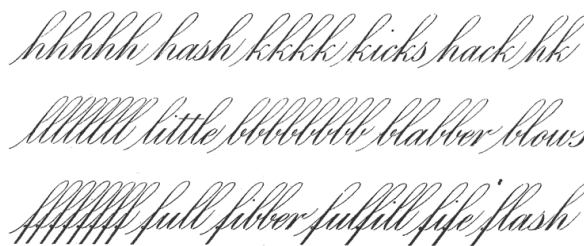 hhhhh hash kkkk kicks hack hk
llllllll little bbbbbbbb blabber blows
ffffffff full fibber fulfill fife flash